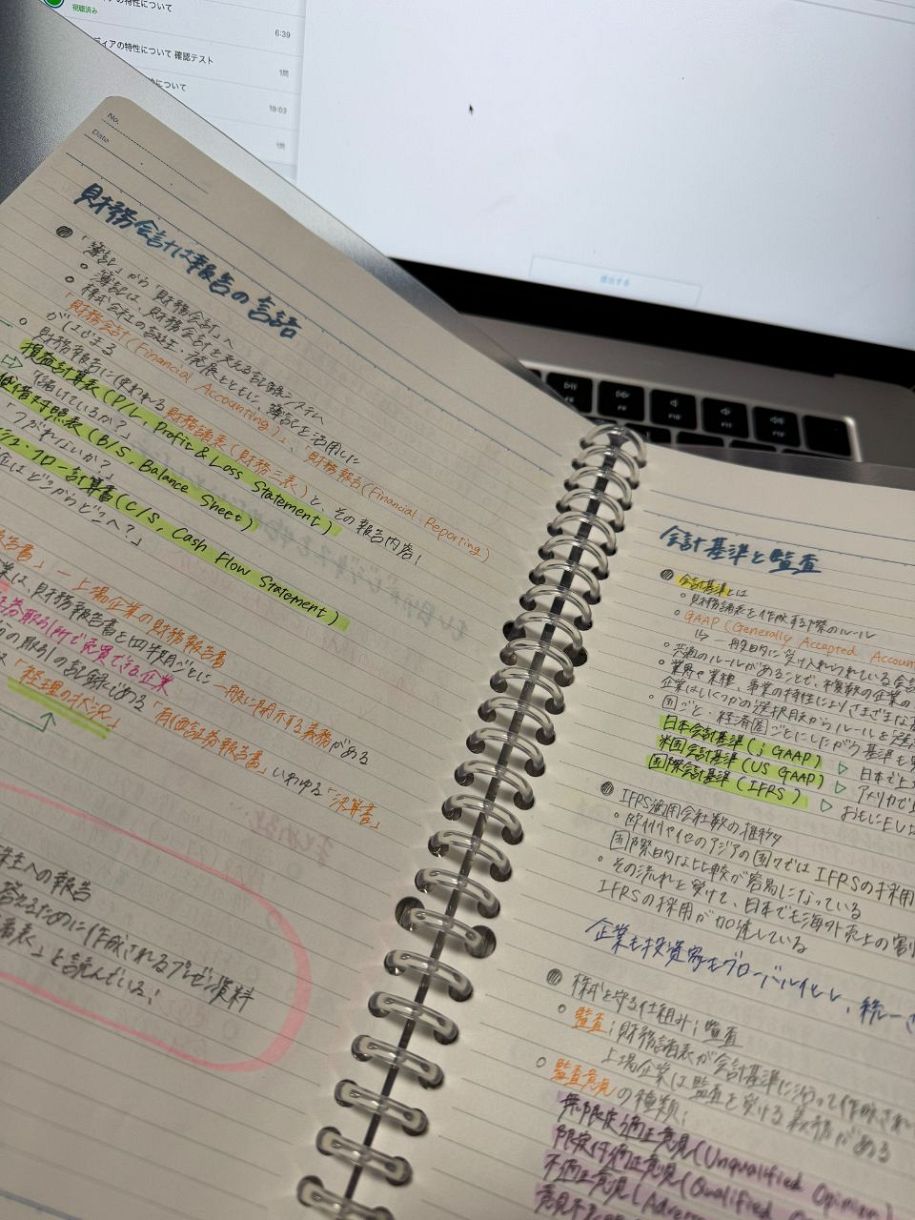 の特性について
視聴済み
6:39
ディアの特性について 確認テスト
1問
について
19:03
1問
提出する
No.
Date
財務会計は報告の言語
「簿記」から「財務会計」へ
簿記は、財務会計を支える記録システム
株式会社の誕生・発展とともに、簿記を活用した
「財務会計(Financial Accounting)」、「財務報告(Financial Reporting)
がはじまる
財務報告に使われる財務諸表(財務三表)と、その報告内容!
損益計算表(P/L, Profit & Loss Statement)
「儲けているか?」
貸借対照表(B/S, Balance Sheet)
「つぶれないか?」
シュ・フロー計算書(C/S, Cash Flow Statement)
金はどこからどこへ?」
報告書」ー上場企業の財務報告書
業は、財務報告書を四半期ごとに一般に開示する義務がある
証券取引所で売買できる企業
の取引の記録である「有価証券報告書」いわゆる「決算書」
は「経理の状況」
主への報告
答えるために作成されるプレゼン資料
表」と読んでいる!
会計基準と監査
会計基準とは
財務諸表を作成する際のルール
GAAP(Generally Accepted Accoun
一般的に受け入れられている会
共通のルールがあることで、複数の企業の
業界や業種、事業の特性によりさまざまな
企業はいくつかの選択肢からルールを選
国ごと・経済圏ごとにしたがう基準も
日本会計基準(j GAAP) ▷ 日本で上
米国会計基準(US GAAP) ▷ アメリカで
国際会計基準(IFRS) ▷ おもにEU
IFRS適用会社数の推移
欧州や他のアジアの国々ではIFRSの採用
国際的な比較が容易になっている
その流れを受けて、日本でも海外売上の割
IFRSの採用が加速している
企業も投資家もグローバル化し、統一さ
株式を守る仕組み:監査
監査:財務諸表が会計基準に沿って作成され
上場企業は監査を受ける義務がある
監査意見の種類:
無限定適正意見(Unqualified Opinion)
限定付適正意見(Qualified O
不適正意見(Advers
意見不